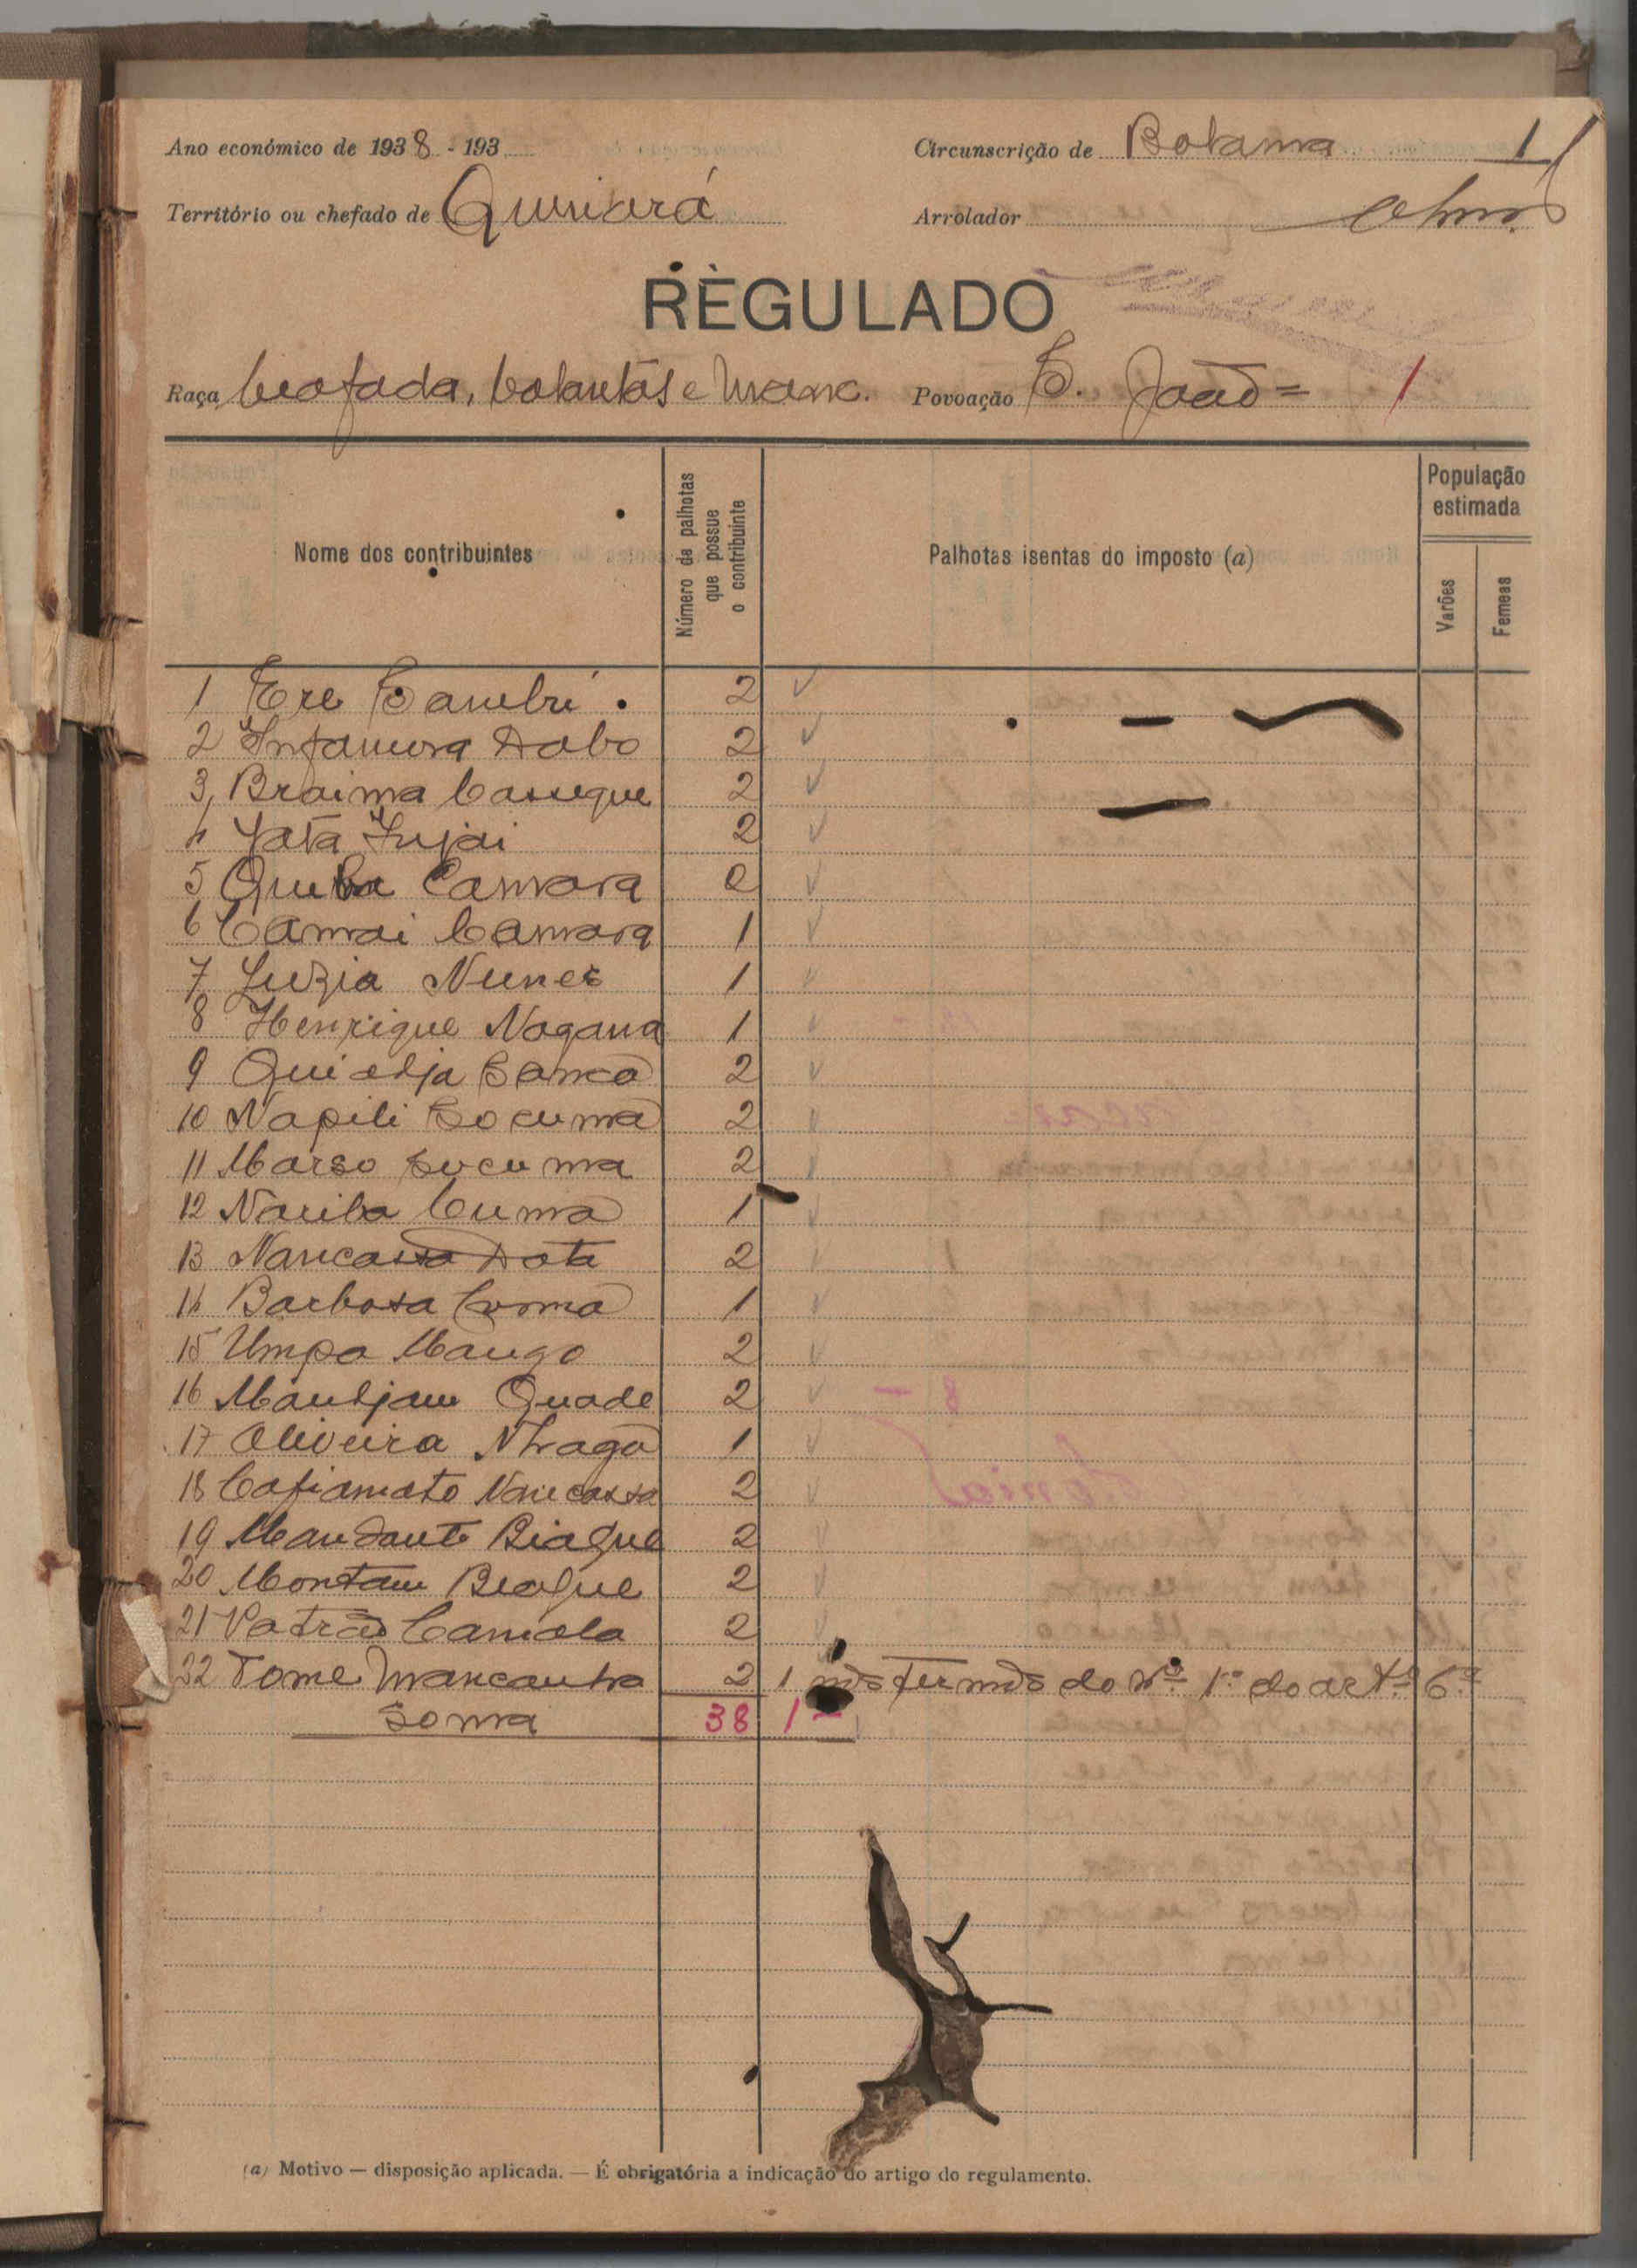 Ano económico de 1938 - 193
Circunscrição de Bolama 1
Território ou chefado de Quinará
Arrolador
REGULADO
Raça beafada, balantas e manc. Povoação S. João = 1
Nome dos contribuintes
Número de palhotas que possue o contribuinte
Palhotas isentas do imposto (a)
População estimada
Varões
Femeas
1 Ere Sambú 2
2 Infamora Dabo 2
3 Braima Cassegue 2
4 Jata Injai 2
5 Queba Camara 2
6 Camai Camara 1
7 Luzia Nunes 1
8 Henrique Nagana 1
9 Sanca 2
10 Napili Socuma 2
11 Marso Socuma 2
12 Nariba Cuma 1
13 Nancassa Data 2
14 Barbosa Comá 1
15 Umpa Mango 2
16 Quade 2
17 Oliveira 1
18 Nancassa 2
19 Mandante Biague 2
20 Montam Biague 2
21 Patrão Camala 2
22 Tome Mancanha 2 1 nos termos do nº 1º do artº 6º
Soma 38 1
(a) Motivo — disposição aplicada. — É obrigatória a indicação do artigo do regulamento.